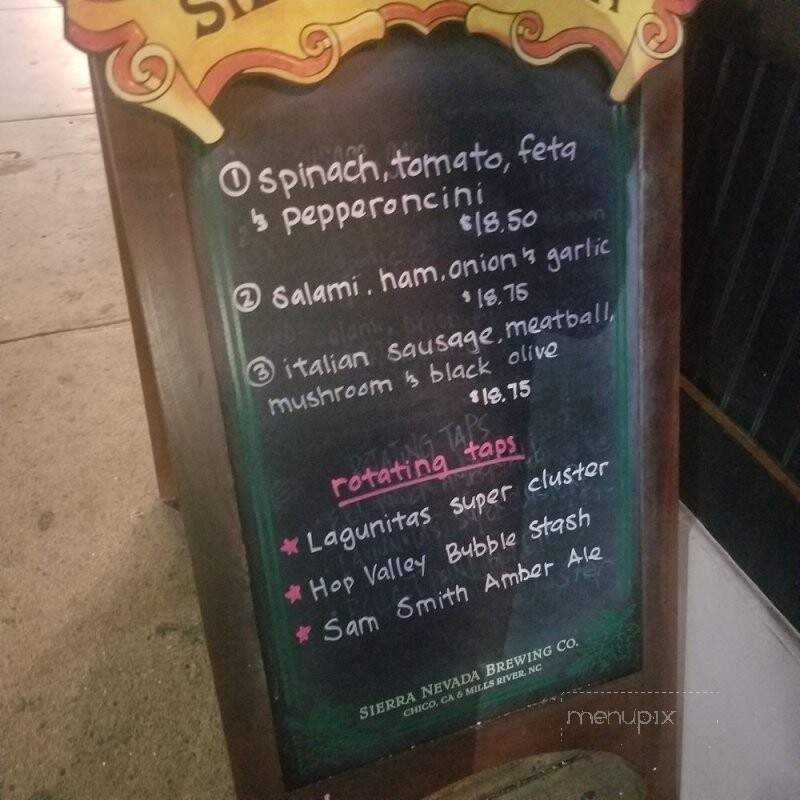 ① spinach, tomato, feta
& pepperoncini
$18.50
② salami, ham, onion & garlic
$18.75
③ italian sausage, meatball,
mushroom & black olive
$18.75
rotating taps
★ Lagunitas super cluster
★ Hop Valley Bubble Stash
★ Sam Smith Amber Ale
SIERRA NEVADA BREWING CO.
CHICO, CA & MILLS RIVER, NC
menupix